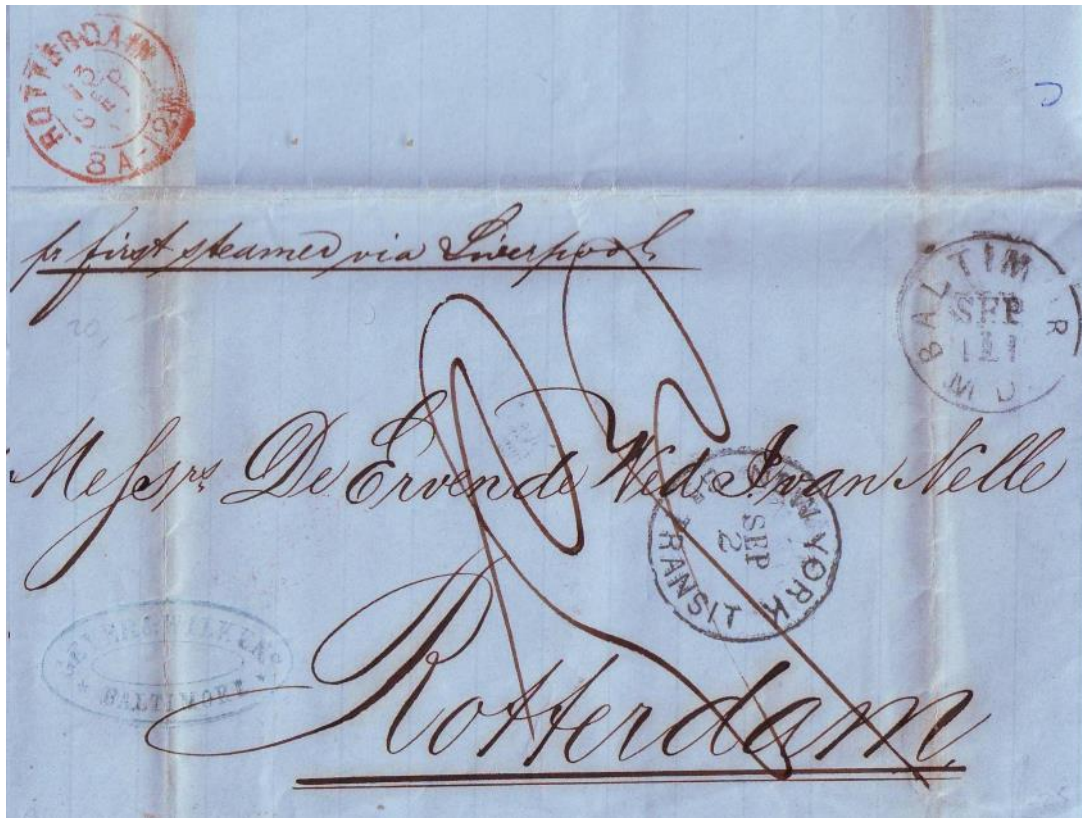 ROTTERDAM
13
SEP
8A-12M
pr first steamer via Liverpool
BALTIM R
SEP
MD
20,
Messrs De Erven de Wed J. van Nelle
NEW YORK
SEP
2
TRANSIT
& WILKENS
BALTIMORE
Rotterdam